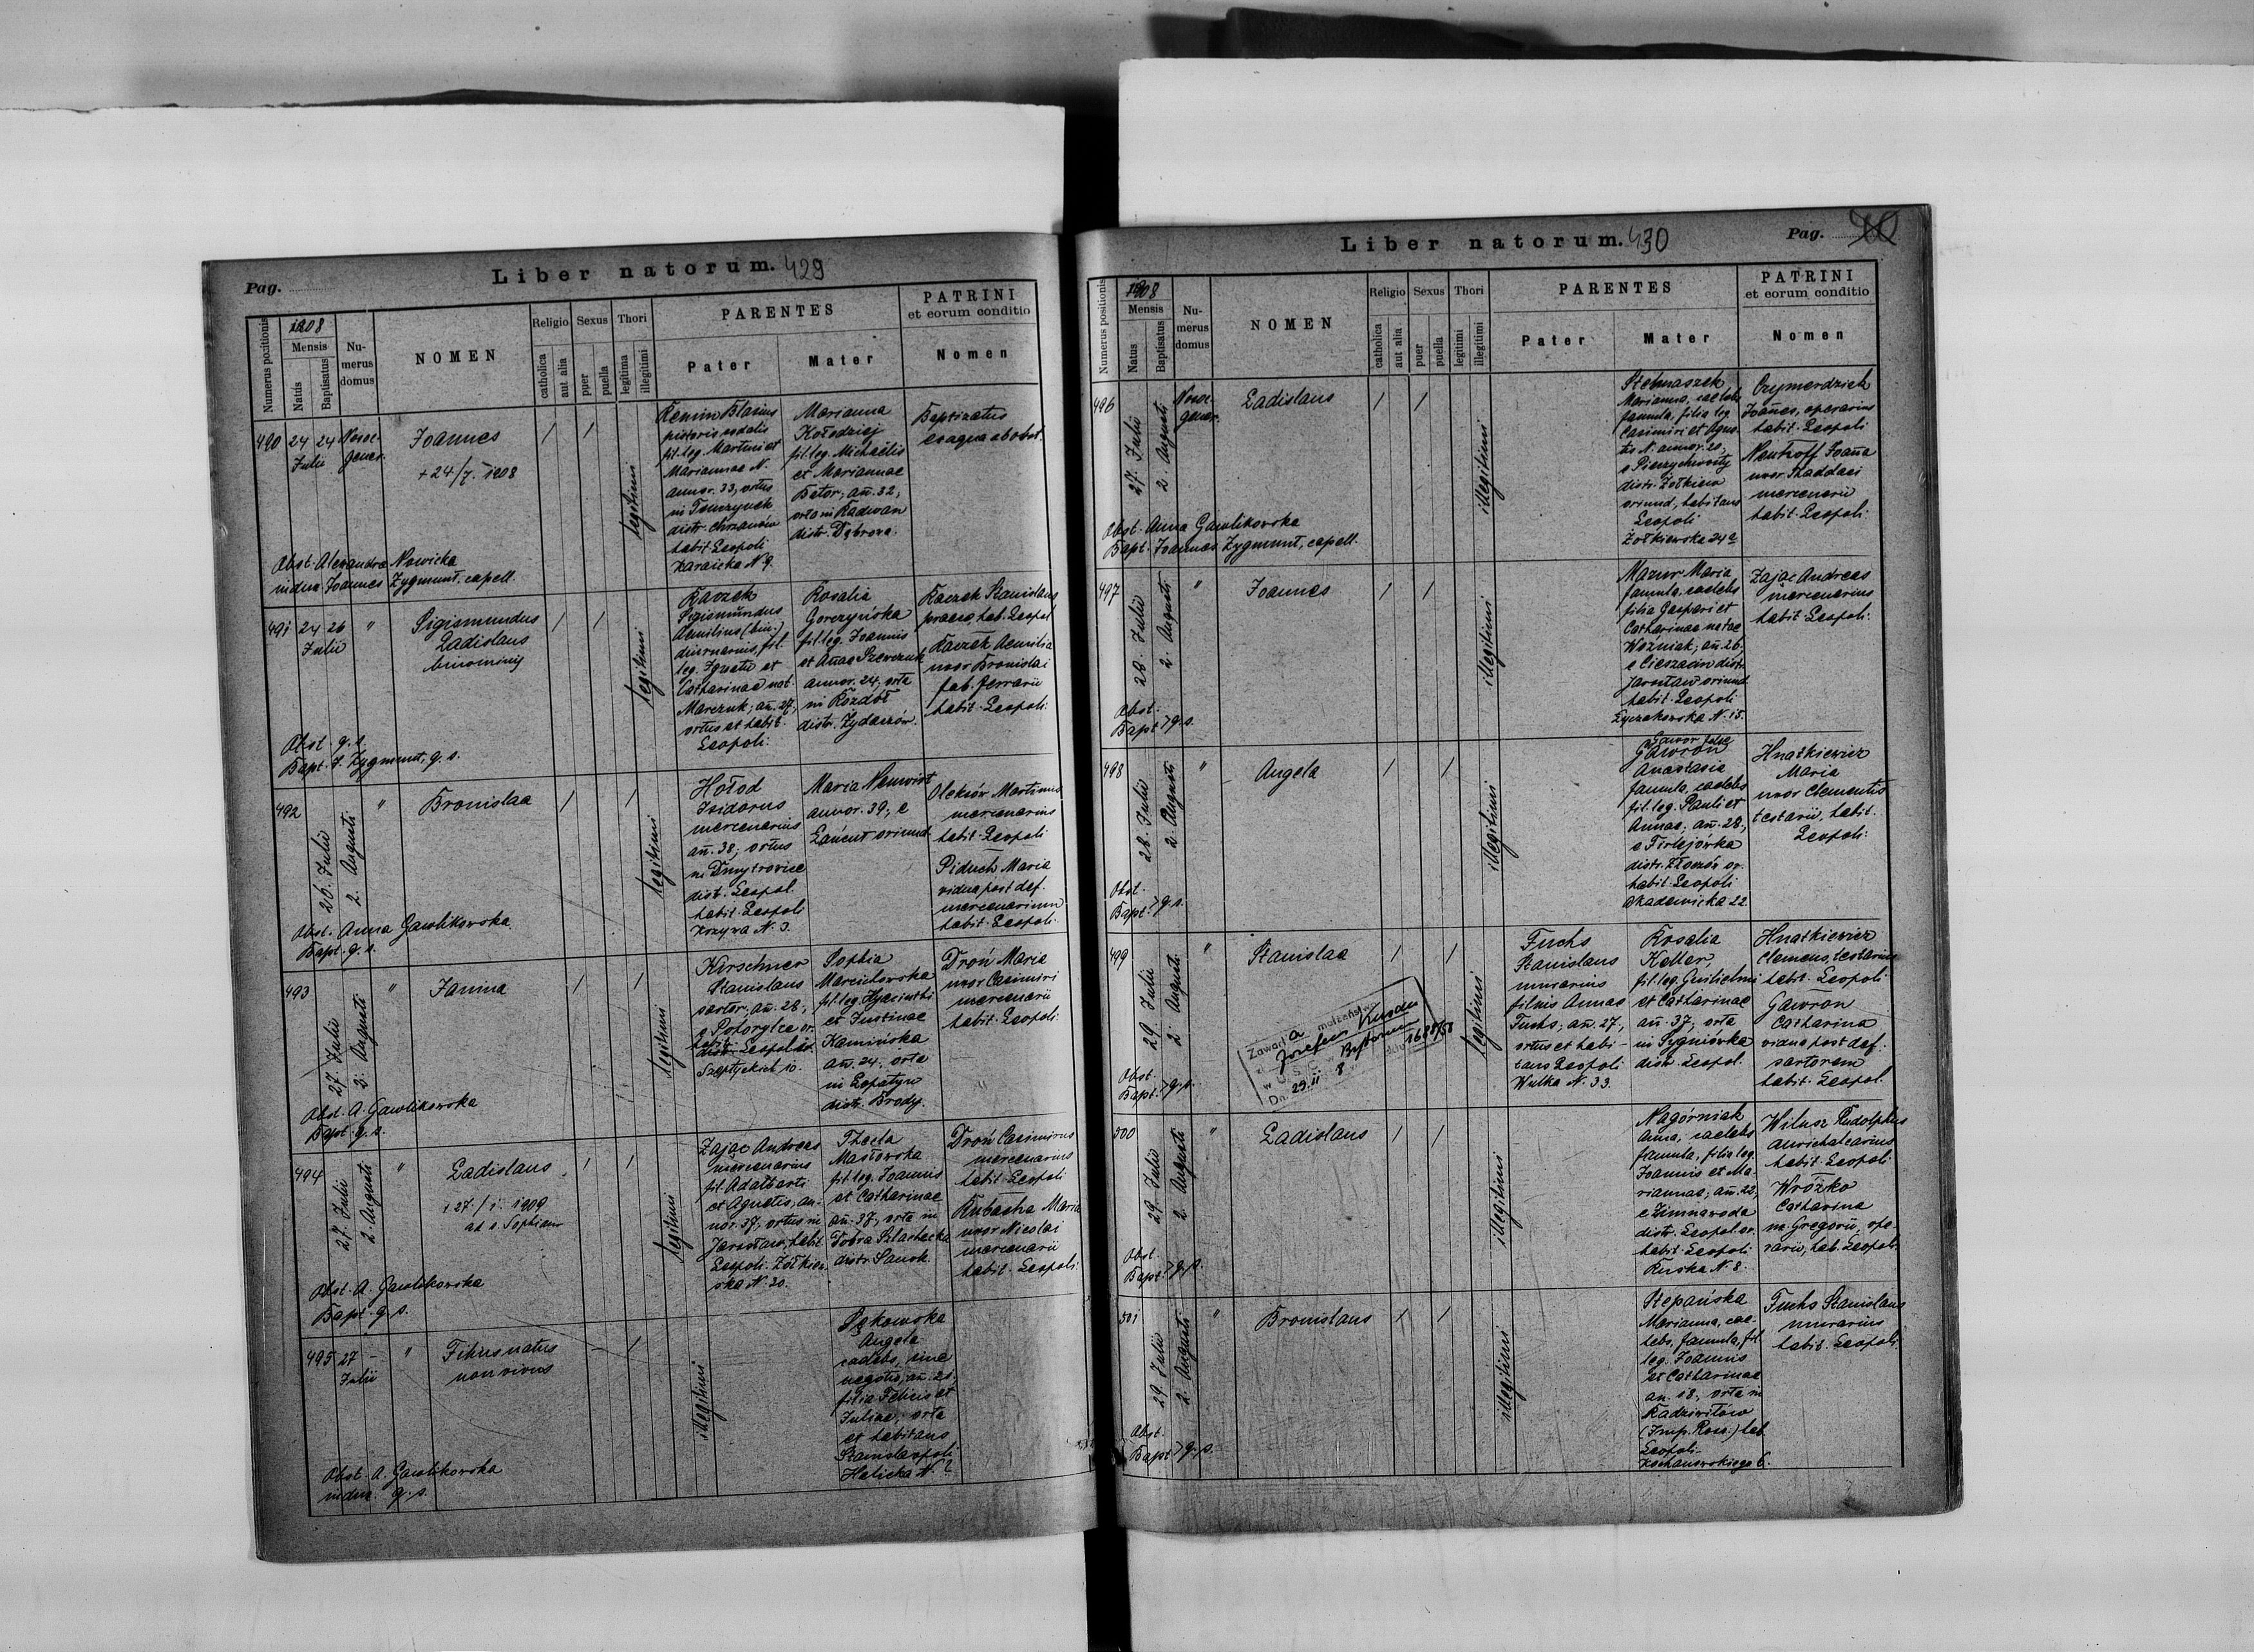 Pag.
Liber natorum. 429
Numerus positionis
1908
Mensis
Natus
Baptisatus
Nu-
merus
domus
NOMEN
Religio
catholica
aut alia
Sexus
puer
puella
Thori
legitima
illegitimi
PARENTES
Pater
Mater
PATRINI
et eorum conditio
Nomen
490
24 24
Julii
Nosoc-
gener.
Joannes
+ 24/7. 1908
/ /
legitimi
Blasius
pistoris sodalis
fil. leg. Martini et
Mariannae N.
annor. 33, ortus
in Tenczynek
distr. Chrzanów
habit. Leopoli
Karaicka N 9.
Marianna
Kołodziej
fil. leg. Michaelis
et Mariannae
Bator; añ. 32,
orta in Radwan
distr. Dąbrowa.
Baptizatus
ex aqua ab obst.
Obst. Alexandra Nowicka
indux. Joannes Zygmunt, capell.
491
24 26
Julii
"
Sigismundus
Ladislaus
binominis
/ /
legitimi
Kaczek
Sigismundus
Aemilius (bin.)
diurnarius, fil.
leg. Ignatii et
Catharinae nat.
Marczuk; añ. 27,
ortus et habit.
Leopoli.
Rosalia
Gorczyńska
fil. leg. Joannis
et Añae Szewczuk
annor. 24, orta
in Rozdół
distr. Żydaczów.
Kaczek Stanislaus
praeco, hab. Leopol
Kaczek Aemilia
uxor Bronislai
fab. ferrarii
habit. Leopoli.
Obst. q. s.
Bapt. J. Zygmunt, q. s.
492
26. Julii
2. Augusti
"
Bronislaa
/ /
legitimi
Hołod
Isidorus
mercenarius
añ. 38; ortus
in Dmytrowice
distr. Leopol.
habit. Leopoli
Kozyra N. 3.
Maria Neuwirt
annor. 39, e
Łańcut oriund.
Oleksów Martinus
mercenarius
habit. Leopoli
Piduch Maria
vidua post def.
mercenarium
habit. Leopoli.
Obst. Anna Gawlikowska
Bapt. q. s.
493
27. Julii
3. Augusti
"
Janina
/ /
legitimi
Kirschner
Stanislaus
sartor, añ. 28,
e Potorytce or.
habit. Leopoli
Szeptyckich 10.
Sophia
Marcichowska
fil. leg. Hyacinthi
et Justinae
Kamińska
añ. 24, orta
in Łopatyn
distr. Brody.
Droń Maria
uxor Casimiri
mercenarii
habit. Leopoli.
Obst. A. Gawlikowska
Bapt. q. s.
494
27. Julii
2. Augusti
"
Ladislaus
+ 27/1. 1909
ad s. Sophiam
/ /
legitimi
Zając Andreas
mercenarius
fil. Adalberti
et Agnetis, an-
nor. 37, ortus in
Jarosław, habit
Leopoli. Żółkiew-
ska N. 20.
Thecla
Masłowska
fil. leg. Joannis
et Catharinae
añ. 37, orta in
Dobra Szlachecka
distr. Sanok.
Droń Casimirus
mercenarius
habit. Leopoli
Kubacha Maria
uxor Nicolai
mercenarii
habit. Leopoli.
Obst. A. Gawlikowska
Bapt. q. s.
495
27 -
Julii
"
natus
non vivus
- /
illegitimi
Angela
caelebs, sine
negotio, añ. 21,
filia Felicis et
Juliae; orta
et habitans
Stanislaopoli
Halicka N.
Obst. A. Gawlikowska
indux. q. s.
Liber natorum. 430
Pag.
Numerus positionis
1908
Mensis
Natus
Baptisatus
Nu-
merus
domus
NOMEN
Religio
catholica
aut alia
Sexus
puer
puella
Thori
legitimi
illegitimi
PARENTES
Pater
Mater
PATRINI
et eorum conditio
Nomen
496
27. Julii
2. Augusti
Nosoc.
gener.
Ladislaus
/ /
illegitimi
Stelmaszek
Marianna, caelebs
famula, filia leg.
Casimiri et Agne-
tis N. annor. 20,
e Pieczychwosty
distr. Żółkiew
oriund, habitans
Leopoli
Żółkiewska 24a
Joañes, operarius
habit. Leopoli
Joaña
uxor Thaddaei
mercenarii
habit. Leopoli.
Obst. Anna Gawlikowska
Bapt. Joannes Zygmunt, capell.
497
28. Julii
2. Augusti
"
Joannes
/ /
illegitimi
Mazur Maria
famula, caelebs
filia Gaspari et
Catharinae natae
Woźniak; añ. 26,
e Cieszacin distr.
Jarosław oriund
habit. Leopoli
Łyczakowska N. 15.
Zając Andreas
mercenarius
habit. Leopoli.
Obst.
Bapt. > q. s.
498
28. Julii
2. Augusti
"
Angela
/ /
illegitimi
Gawor false
Gawron
Anastasia
famula, caelebs
fil. leg. Pauli et
Annae; añ. 28,
e Firlejówka
distr. Złoczów or.
habit. Leopoli
Akademicka 22
Hnatkiewicz
Maria
uxor Clementis
testarii, habit.
Leopoli.
Obst.
Bapt. > q. s.
499
29 Julii
2. Augusti
"
Stanislaa
/ /
legitimi
Zawarła małżeństwo
z Józefem
w U. S. C. w Bytomiu
Nr 1688/58
Dn. 29. II 8
Fuchs
Stanislaus
murarius
filius Annae
Fuchs; añ. 27,
ortus et habi-
tans Leopoli
Wulka N. 33.
Rosalia
Keller,
fil. leg. Guilielmi
et Catharinae
añ. 37, orta
in Sygniówka
distr. Leopol.
Hnatkiewicz
Clemens, testarius
habit. Leopoli
Gawron
Catharina
vidua post def.
sartorem
habit. Leopol.
Obst.
Bapt. > q. s.
500
29. Julii
2. Augusti
"
Ladislaus
/ /
illegitimi
Nagórniak
Anna, caelebs
famula, filia leg.
Joannis et Ma-
riannae; añ. 22,
e Zimnawoda
distr. Leopol. or.
habit. Leopoli
Ruska N. 8.
Wilusz Rudolphus
aurichalcarius
habit. Leopoli
Wróżko
Catharina
ux. Gregorii, ope-
rarii, hab. Leopoli.
Obst.
Bapt. > q. s.
501
29. Julii
2. Augusti
"
Bronislaus
/ /
illegitimi
Stepańska
Marianna, cae-
lebs, famula, fil.
leg. Joannis
et Catharinae
añ. 18, orta in
Radziwiłłów
(Imp. Ross.) hab
Leopoli
Kochanowskiego 6.
Fuchs Stanislaus
murarius
habit. Leopoli.
Obst.
Bapt. > q. s.